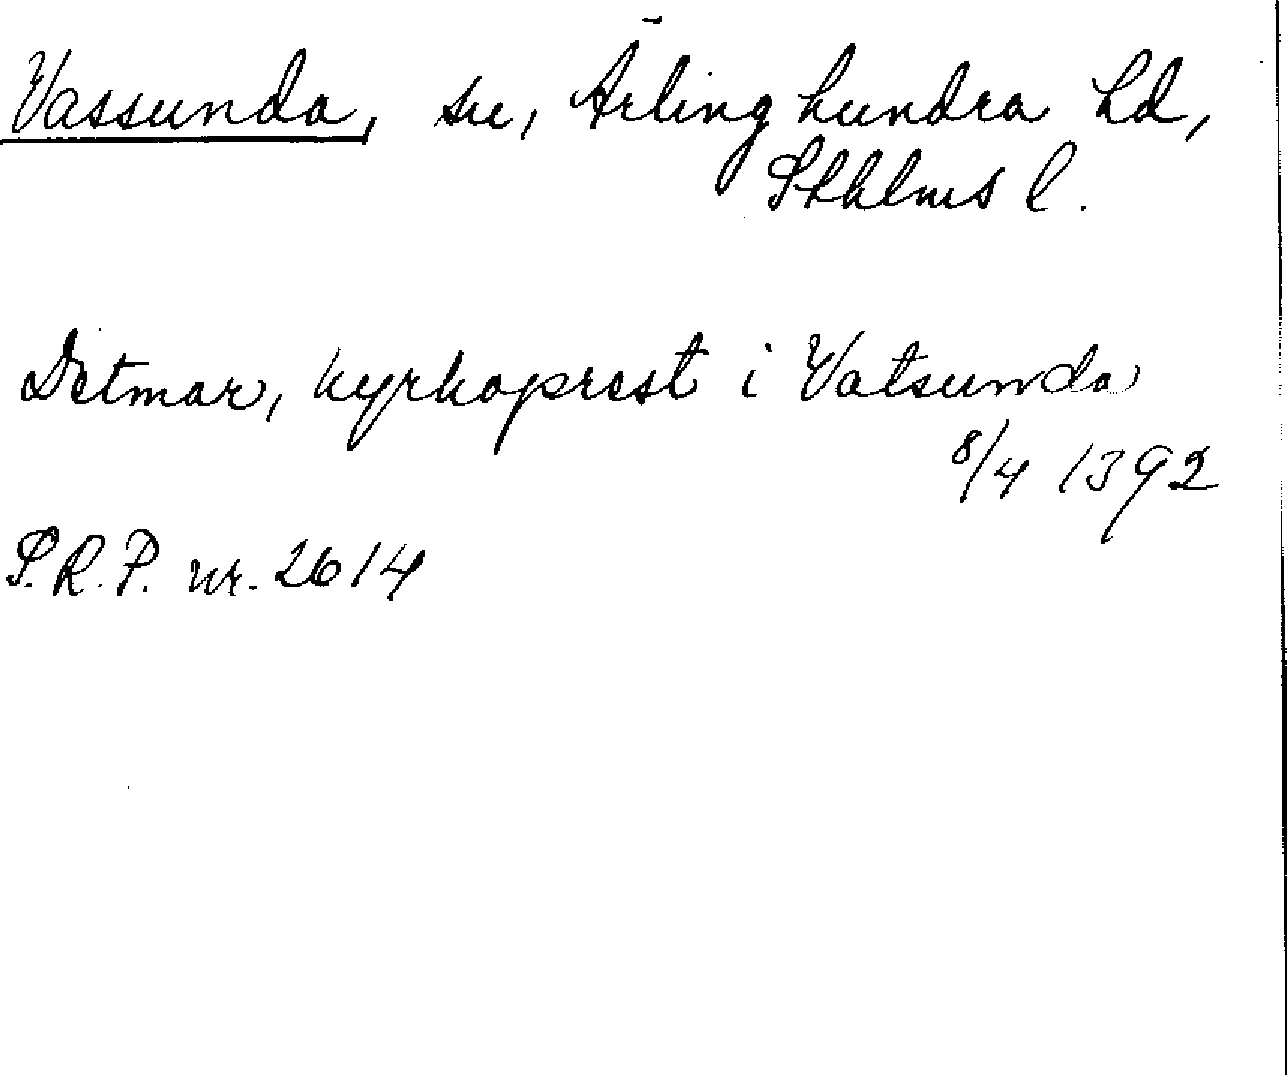 Vassunda, sn, Ärlinghundra hd,
Sthlms l.
Detmar, kyrkoprest i Vatsunda
8/4 1392
S.R.P. nr. 2614